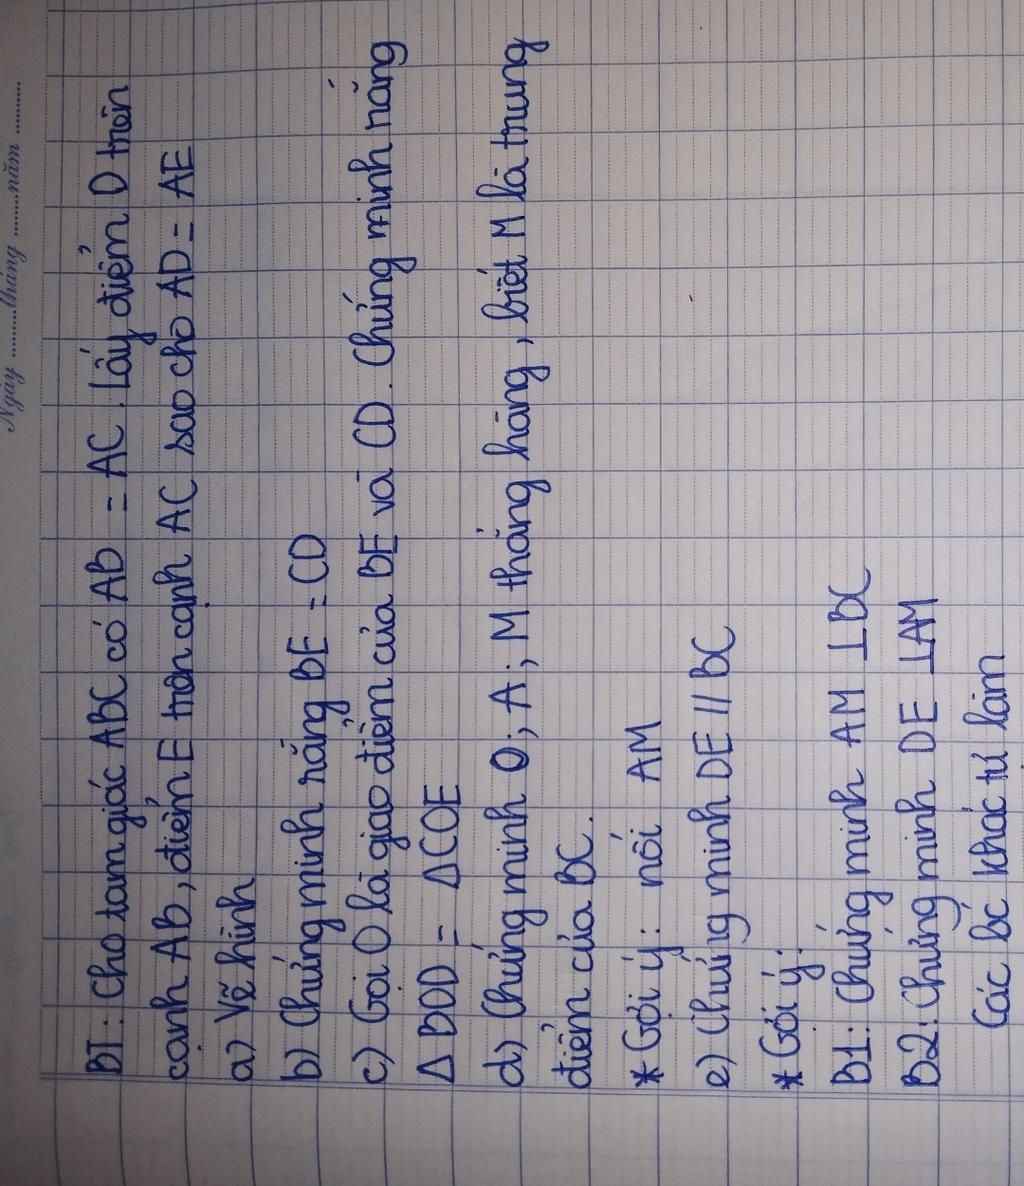 Ngày ......... tháng ......... năm .........
BT: Cho tam giác ABC có AB = AC. Lấy điểm D trên
cạnh AB, điểm E trên cạnh AC sao cho AD = AE
a) Vẽ hình
b) Chứng minh rằng BE = CD
c) Gọi O là giao điểm của BE và CD. Chứng minh rằng
Δ BOD = ΔCOE
d) Chứng minh O; A; M thẳng hàng, biết M là trung
điểm của BC.
* Gợi ý: nối AM
e) Chứng minh DE // BC
* Gợi ý:
B1: Chứng minh AM ⊥ BC
B2: Chứng minh DE ⊥ AM
Các bc khác tự làm